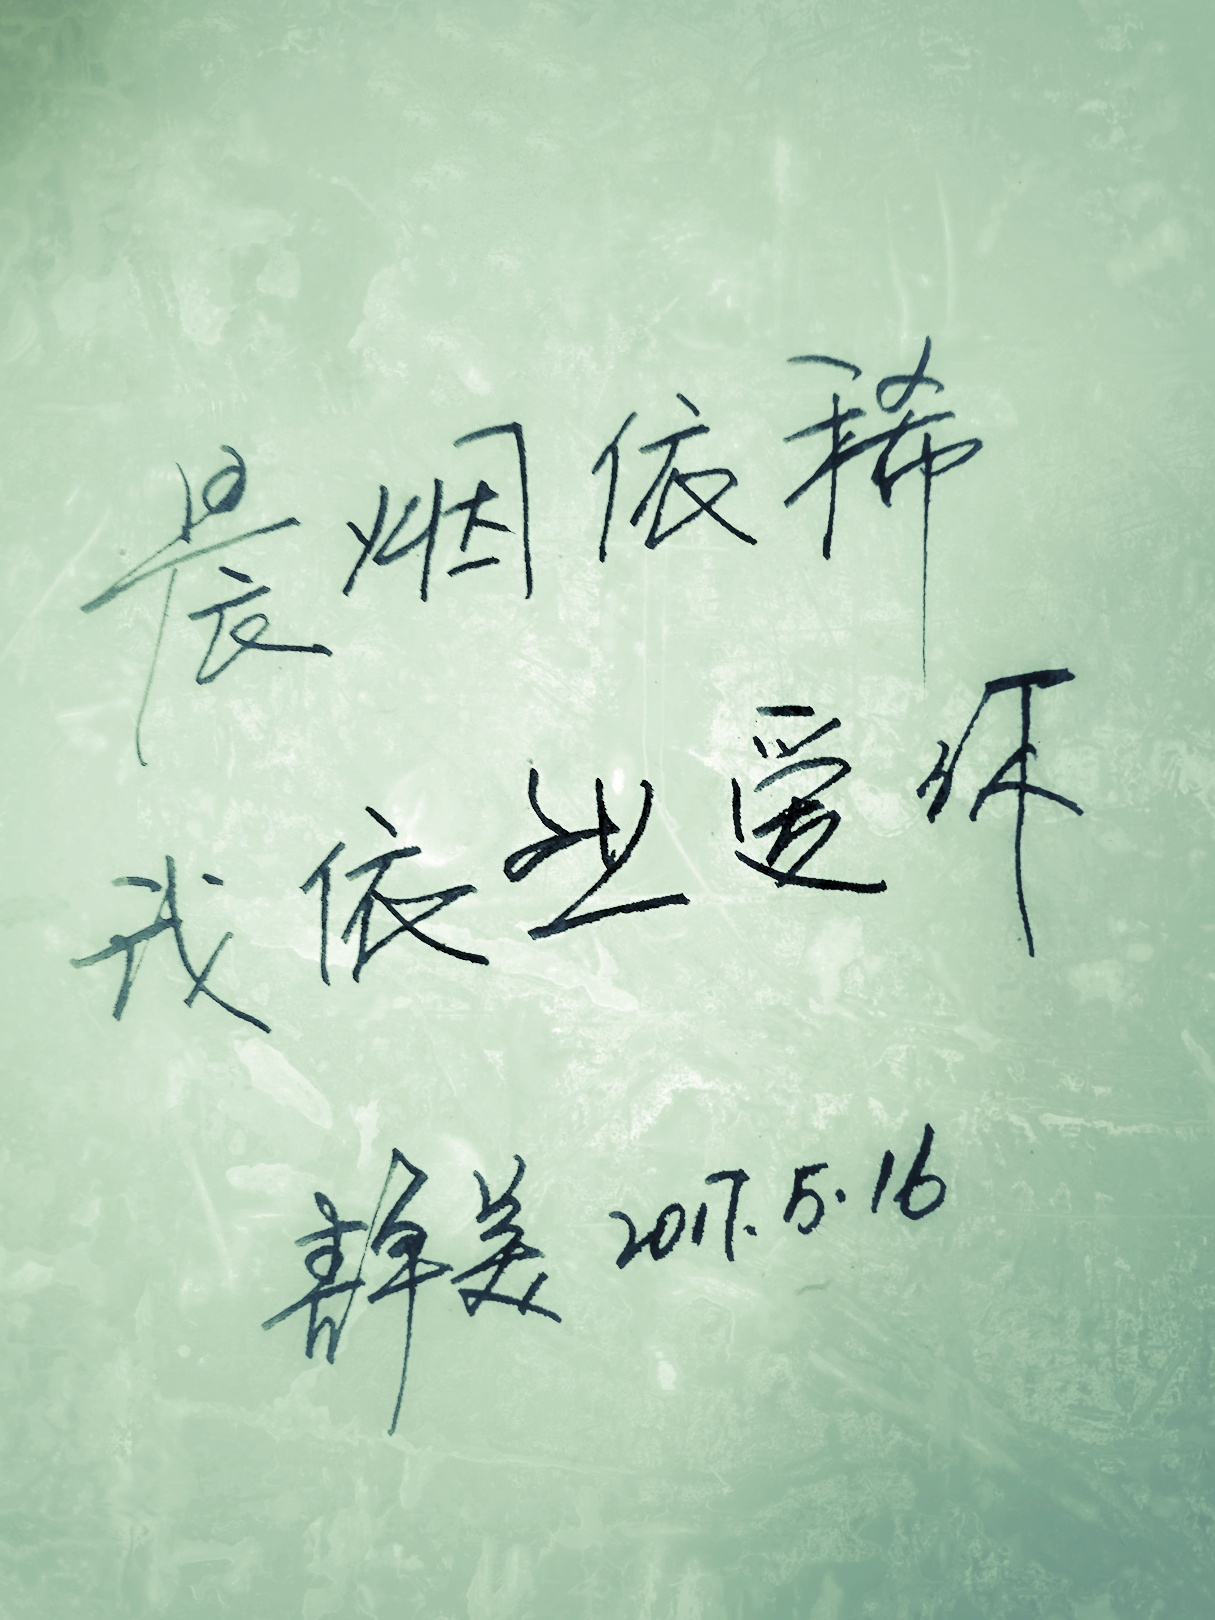 晨烟依稀
我依然爱你
静美 2017.5.16